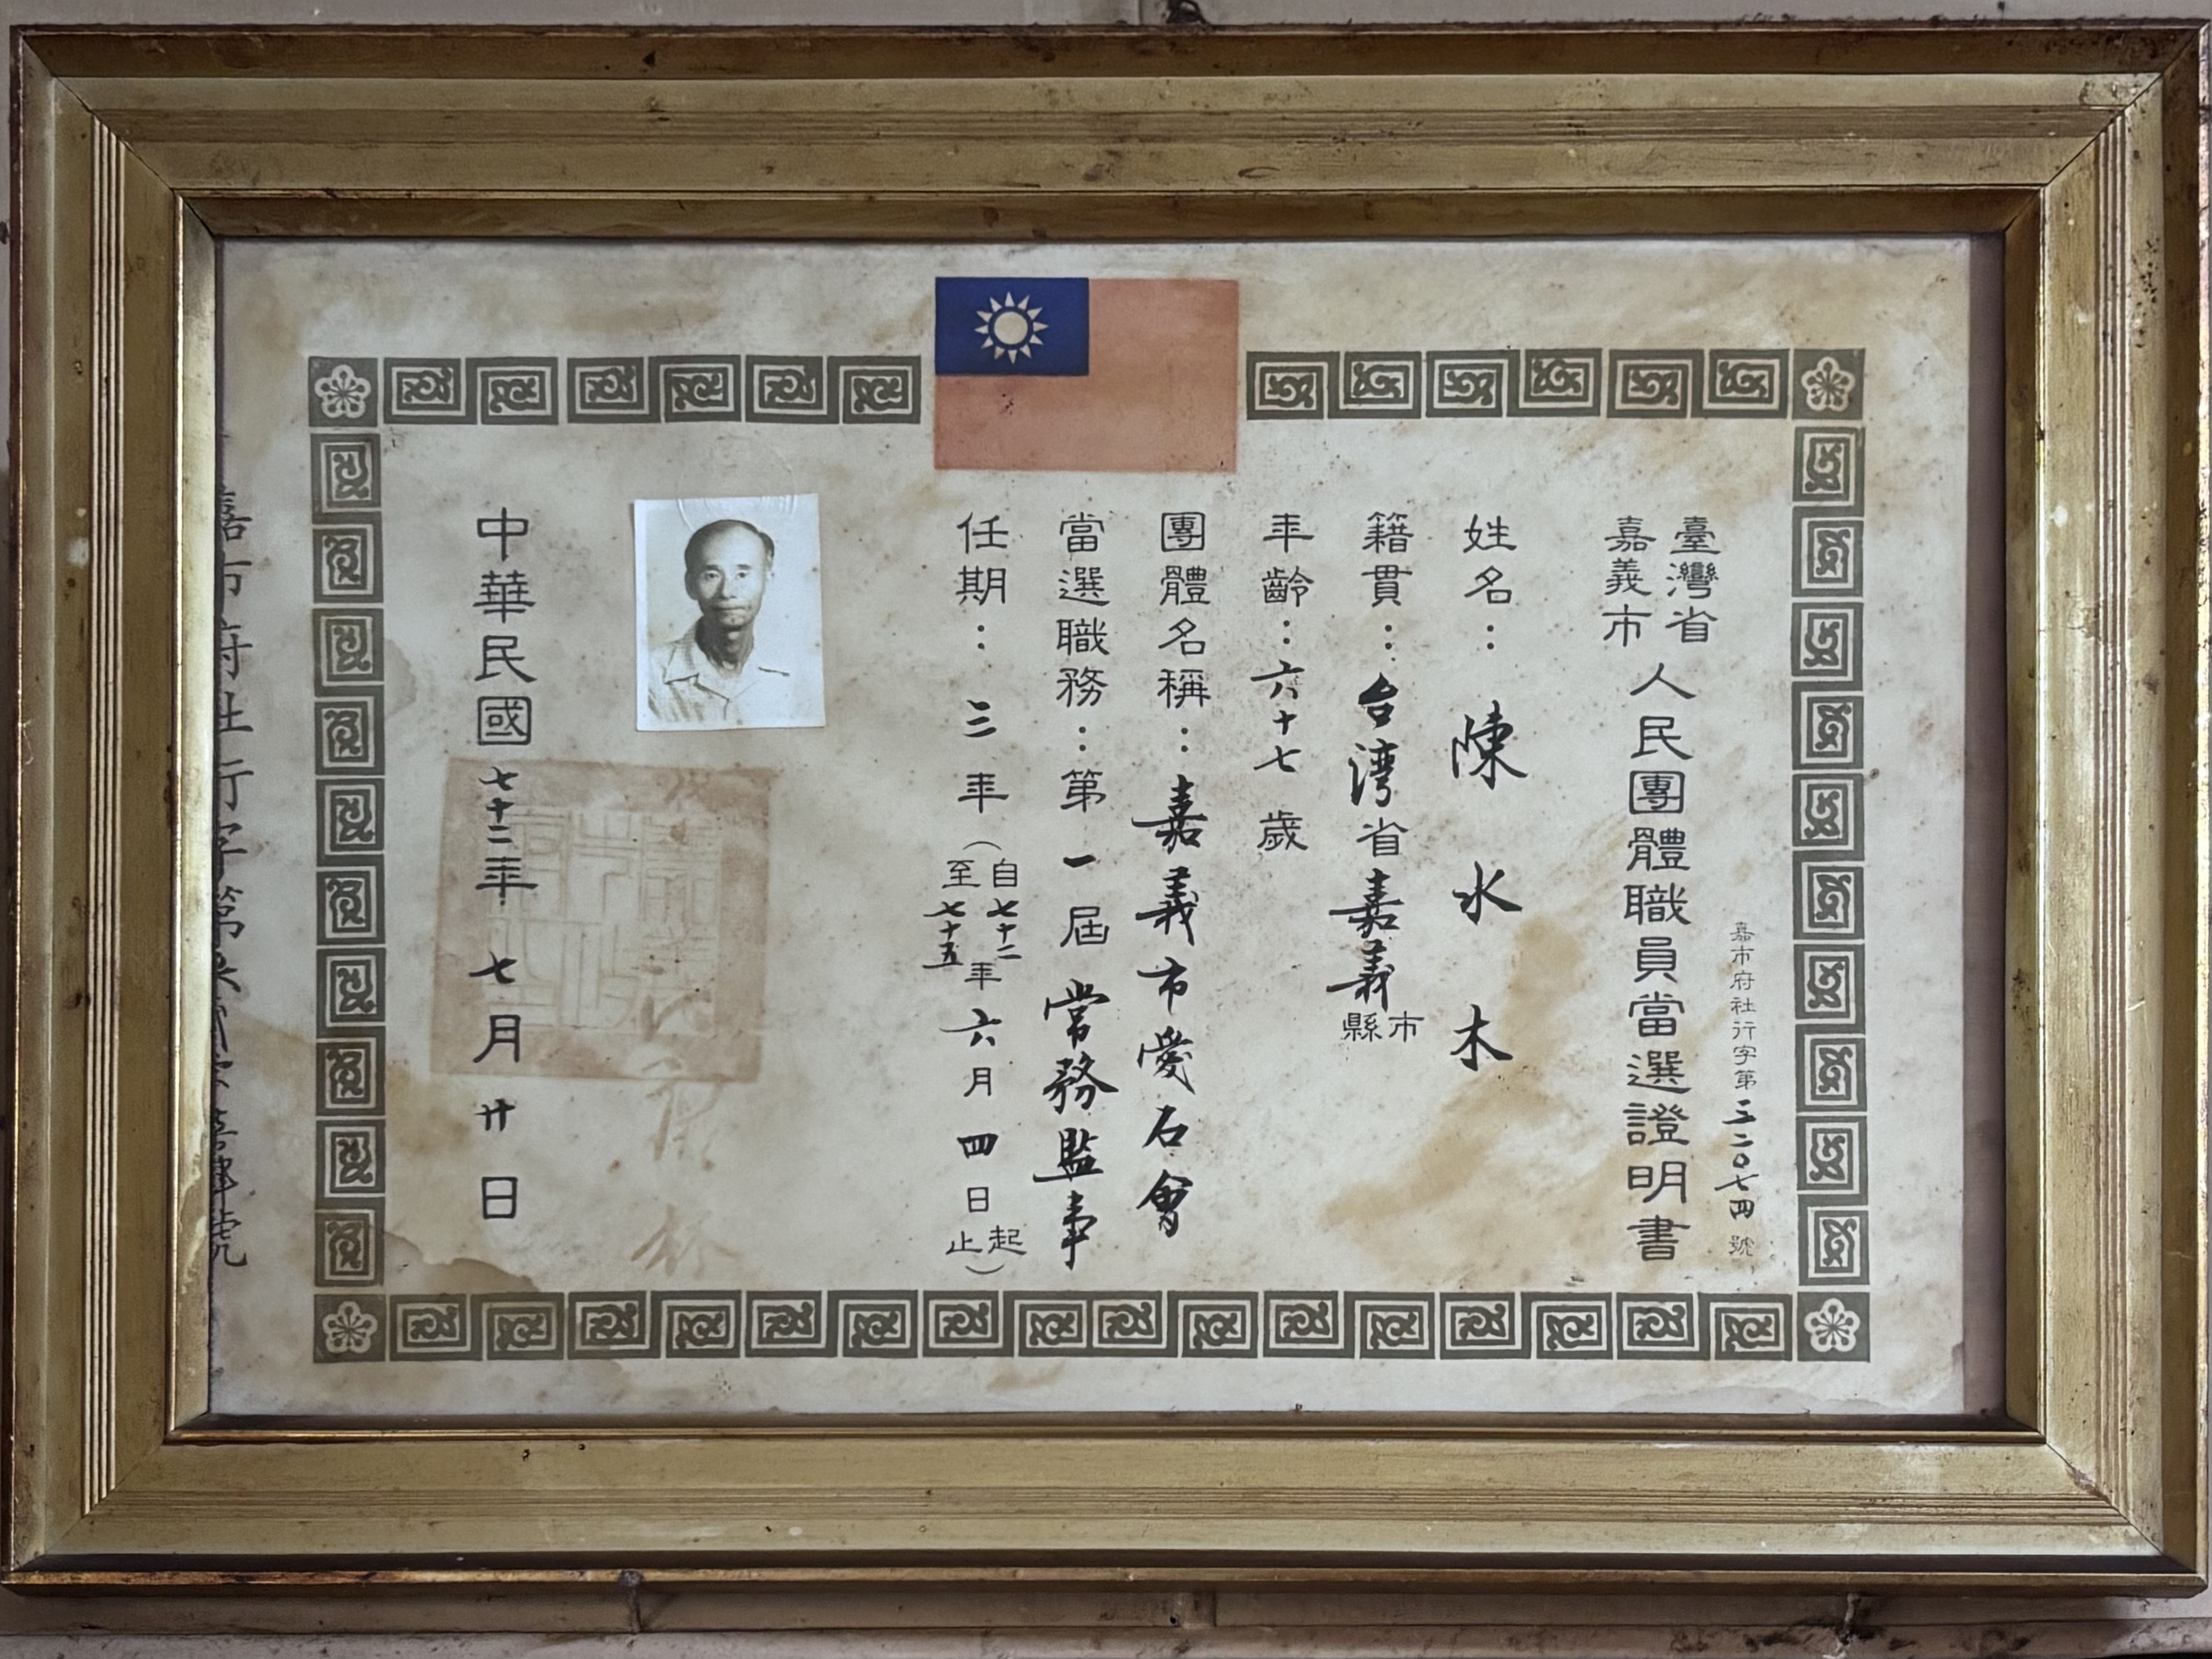 嘉市府社行字第三二〇七四號
臺灣省
嘉義市
人民團體職員當選證明書
姓名：陳水木
籍貫：台湾省嘉義市縣
年齡：六十七歲
團體名稱：嘉義市愛石會
當選職務：第一屆常務監事
任期：三年（自七十二至七十五年六月四日起止）
中華民國七十二年七月廿日
嘉市府社行字第
號